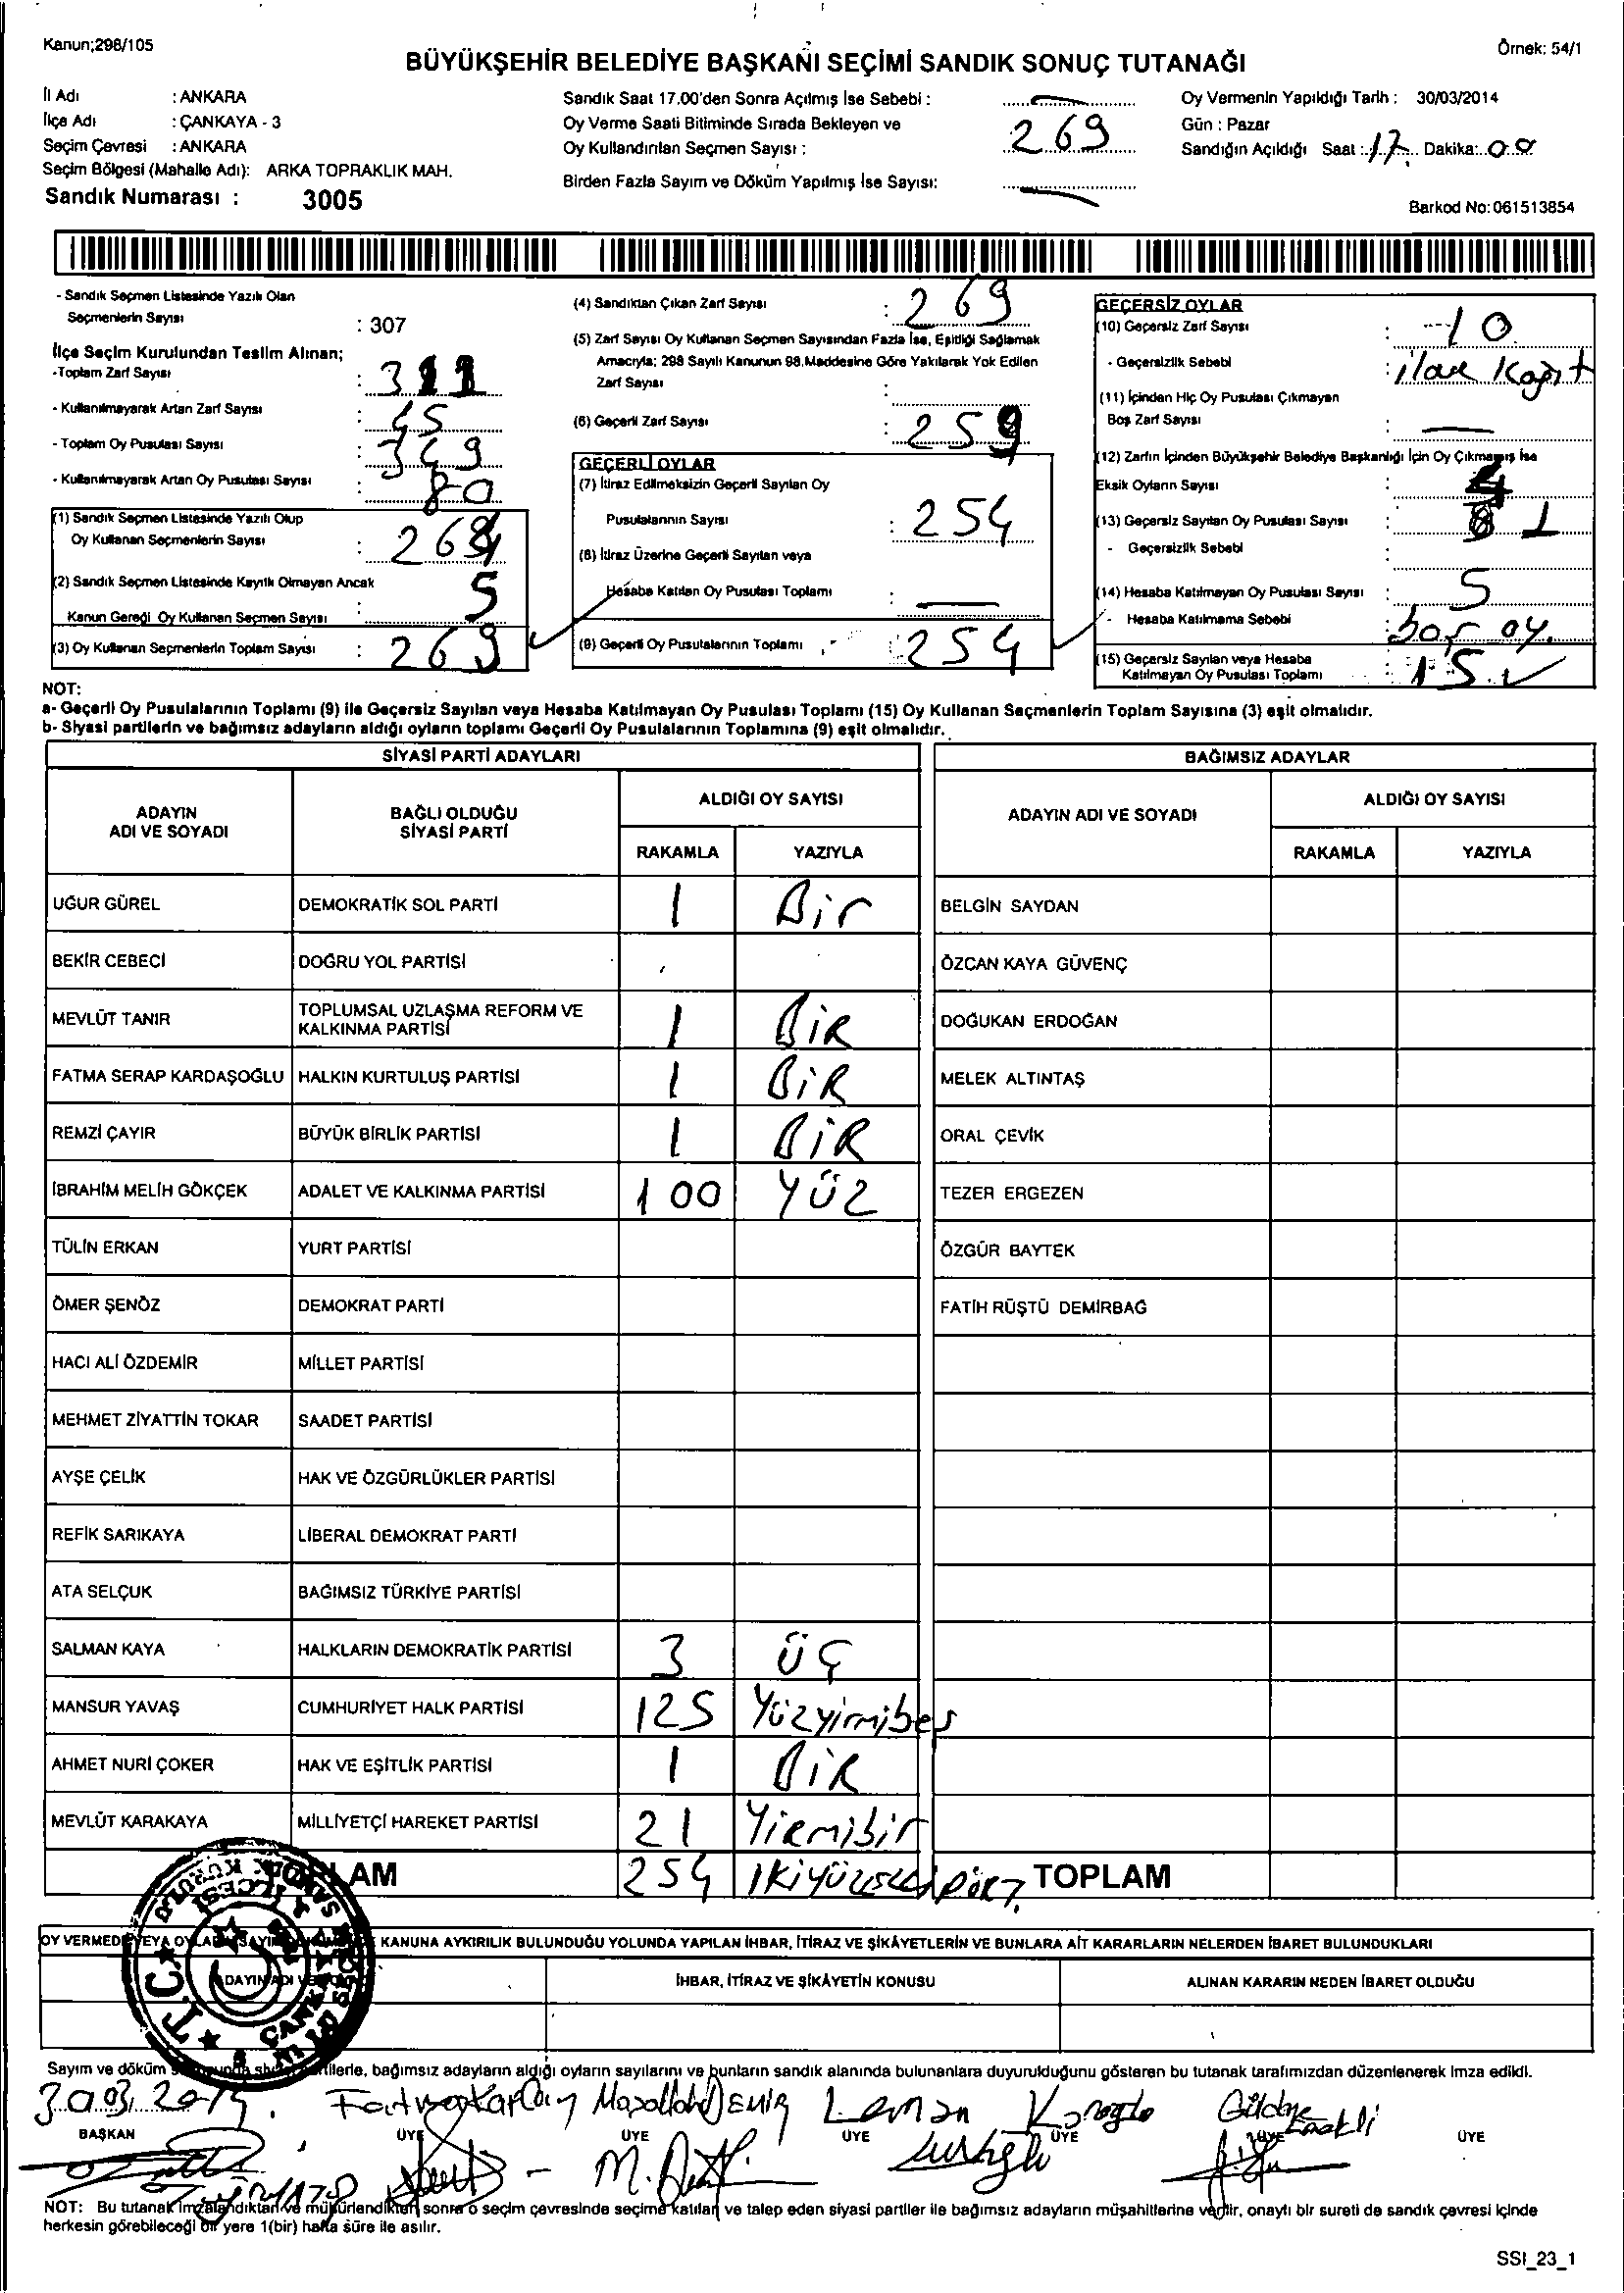 Kanun;298/105
Örnek: 54/1
BÜYÜKŞEHİR BELEDİYE BAŞKANI SEÇİMİ SANDIK SONUÇ TUTANAĞI
İl Adı : ANKARA
İlçe Adı : ÇANKAYA - 3
Seçim Çevresi : ANKARA
Seçim Bölgesi (Mahalle Adı): ARKA TOPRAKLIK MAH.
Sandık Numarası : 3005
Sandık Saat 17.00'den Sonra Açılmış İse Sebebi :
Oy Verme Saati Bitiminde Sırada Bekleyen ve
Oy Kullandırılan Seçmen Sayısı : 269
Birden Fazla Sayım ve Döküm Yapılmış İse Sayısı:
Oy Vermenin Yapıldığı Tarih : 30/03/2014
Gün : Pazar
Sandığın Açıldığı Saat : 17 Dakika: 00
Barkod No:061513854
- Sandık Seçmen Listesinde Yazılı Olan
Seçmenlerin Sayısı : 307
İlçe Seçim Kurulundan Teslim Alınan;
-Toplam Zarf Sayısı :
- Kullanılmayarak Artan Zarf Sayısı : 45
- Toplam Oy Pusulası Sayısı : 349
- Kullanılmayarak Artan Oy Pusulası Sayısı : 80
(1) Sandık Seçmen Listesinde Yazılı Olup
Oy Kullanan Seçmenlerin Sayısı : 264
(2) Sandık Seçmen Listesinde Kayıtlı Olmayan Ancak
Kanun Gereği Oy Kullanan Seçmen Sayısı : 5
(3) Oy Kullanan Seçmenlerin Toplam Sayısı : 269
(4) Sandıktan Çıkan Zarf Sayısı : 269
(5) Zarf Sayısı Oy Kullanan Seçmen Sayısından Fazla İse, Eşitliği Sağlamak
Amacıyla; 298 Sayılı Kanunun 98.Maddesine Göre Yakılarak Yok Edilen
Zarf Sayısı :
(6) Geçerli Zarf Sayısı : 259
GEÇERLİ OYLAR
(7) İtiraz Edilmeksizin Geçerli Sayılan Oy
Pusulalarının Sayısı : 254
(8) İtiraz Üzerine Geçerli Sayılan veya
Hesaba Katılan Oy Pusulası Toplamı :
(9) Geçerli Oy Pusulalarının Toplamı : 254
GEÇERSİZ OYLAR
(10) Geçersiz Zarf Sayısı : 10
- Geçersizlik Sebebi : Kağıt
(11) İçinden Hiç Oy Pusulası Çıkmayan
Boş Zarf Sayısı :
(12) Zarfın İçinden Büyükşehir Belediye Başkanlığı İçin Oy Çıkmamış İse
Eksik Oyların Sayısı :
(13) Geçersiz Sayılan Oy Pusulası Sayısı :
- Geçersizlik Sebebi :
(14) Hesaba Katılmayan Oy Pusulası Sayısı : 5
- Hesaba Katılmama Sebebi : boş oy.
(15) Geçersiz Sayılan veya Hesaba
Katılmayan Oy Pusulası Toplamı : 15
NOT:
a- Geçerli Oy Pusulalarının Toplamı (9) ile Geçersiz Sayılan veya Hesaba Katılmayan Oy Pusulası Toplamı (15) Oy Kullanan Seçmenlerin Toplam Sayısına (3) eşit olmalıdır.
b- Siyasi partilerin ve bağımsız adayların aldığı oyların toplamı Geçerli Oy Pusulalarının Toplamına (9) eşit olmalıdır.
SİYASİ PARTİ ADAYLARI
ADAYIN ADI VE SOYADI
BAĞLI OLDUĞU SİYASİ PARTİ
ALDIĞI OY SAYISI
RAKAMLA YAZIYLA
UĞUR GÜREL DEMOKRATİK SOL PARTİ 1 Bir
BEKİR CEBECİ DOĞRU YOL PARTİSİ
MEVLÜT TANIR TOPLUMSAL UZLAŞMA REFORM VE KALKINMA PARTİSİ 1 BİR
FATMA SERAP KARDAŞOĞLU HALKIN KURTULUŞ PARTİSİ 1 BİR
REMZİ ÇAYIR BÜYÜK BİRLİK PARTİSİ 1 BİR
İBRAHİM MELİH GÖKÇEK ADALET VE KALKINMA PARTİSİ 100 YÜZ
TÜLİN ERKAN YURT PARTİSİ
ÖMER ŞENÖZ DEMOKRAT PARTİ
HACI ALİ ÖZDEMİR MİLLET PARTİSİ
MEHMET ZİYATTİN TOKAR SAADET PARTİSİ
AYŞE ÇELİK HAK VE ÖZGÜRLÜKLER PARTİSİ
REFİK SARIKAYA LİBERAL DEMOKRAT PARTİ
ATA SELÇUK BAĞIMSIZ TÜRKİYE PARTİSİ
SALMAN KAYA HALKLARIN DEMOKRATİK PARTİSİ 3 ÜÇ
MANSUR YAVAŞ CUMHURİYET HALK PARTİSİ 125 Yüzyirmibeş
AHMET NURİ ÇOKER HAK VE EŞİTLİK PARTİSİ 1 BİR
MEVLÜT KARAKAYA MİLLİYETÇİ HAREKET PARTİSİ 21 Yirmibir
254
BAĞIMSIZ ADAYLAR
ADAYIN ADI VE SOYADI
ALDIĞI OY SAYISI
RAKAMLA YAZIYLA
BELGİN SAYDAN
ÖZCAN KAYA GÜVENÇ
DOĞUKAN ERDOĞAN
MELEK ALTINTAŞ
ORAL ÇEVİK
TEZER ERGEZEN
ÖZGÜR BAYTEK
FATİH RÜŞTÜ DEMİRBAĞ
TOPLAM
OY VERMEDE KANUNA AYKIRILIK BULUNDUĞU YOLUNDA YAPILAN İHBAR, İTİRAZ VE ŞİKÂYETLERİN VE BUNLARA AİT KARARLARIN NELERDEN İBARET BULUNDUKLARI
İHBAR, İTİRAZ VE ŞİKÂYETİN KONUSU
ALINAN KARARIN NEDEN İBARET OLDUĞU
Sayım ve döküm bağımsız adayların aldığı oyların sayılarını ve bunların sandık alanında bulunanlara duyurulduğunu gösteren bu tutanak tarafımızdan düzenlenerek imza edildi.
30.03.2014
BAŞKAN ÜYE ÜYE ÜYE ÜYE ÜYE ÜYE
NOT: Bu tutanak imzalandıktan ve mühürlendikten sonra o seçim çevresinde seçime katılan ve talep eden siyasi partiler ile bağımsız adayların müşahitlerine verilir, onaylı bir sureti de sandık çevresi içinde
herkesin görebileceği bir yere 1(bir) hafta süre ile asılır.
SSI_23_1